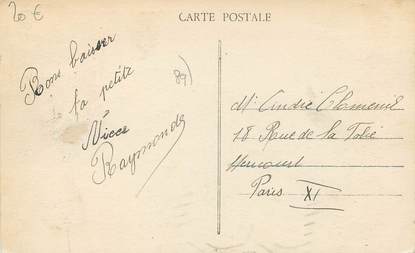 20 €
CARTE POSTALE
Bons baiser
de ta petite
Nièce
Raymonde
89)
Mr André
18 Rue de la Folie
Méricourt
Paris XI